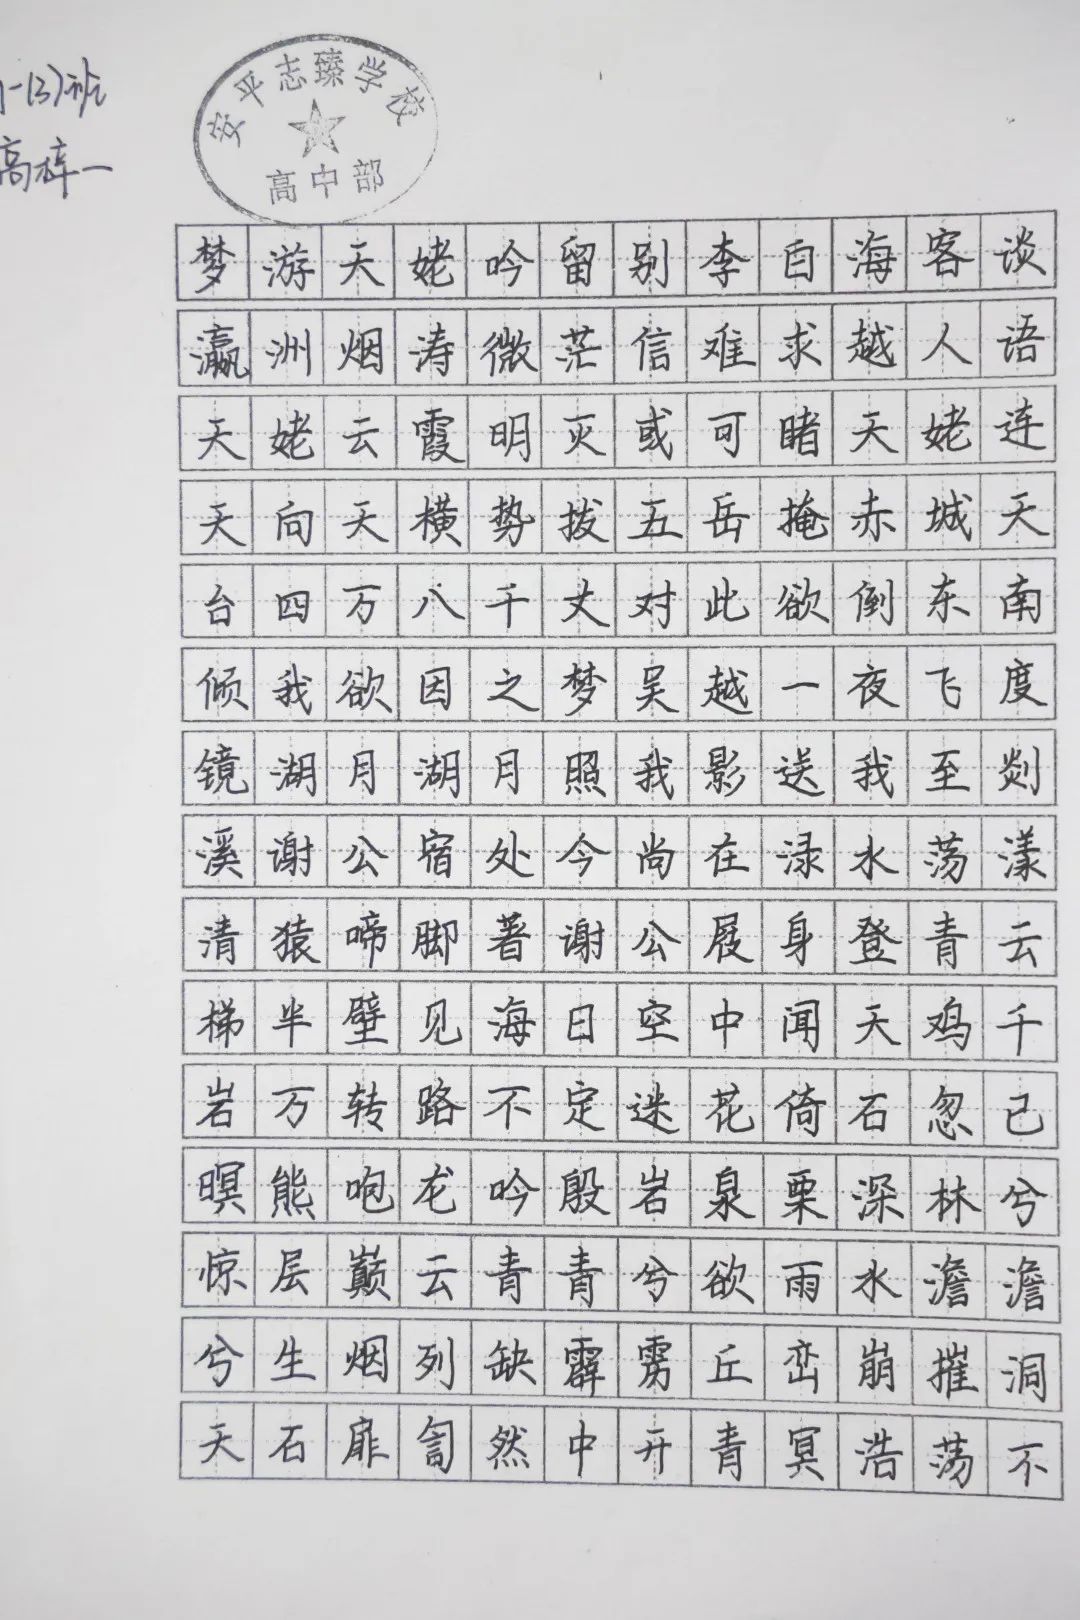 1-(3)班
高梓一
安平志臻学校
高中部
梦游天姥吟留别李白海客谈
瀛洲烟涛微茫信难求越人语
天姥云霞明灭或可睹天姥连
天向天横势拔五岳掩赤城天
台四万八千丈对此欲倒东南
倾我欲因之梦吴越一夜飞度
镜湖月湖月照我影送我至剡
溪谢公宿处今尚在渌水荡漾
清猿啼脚著谢公屐身登青云
梯半壁见海日空中闻天鸡千
岩万转路不定迷花倚石忽已
暝熊咆龙吟殷岩泉栗深林兮
惊层巅云青青兮欲雨水澹澹
兮生烟列缺霹雳丘峦崩摧洞
天石扉訇然中开青冥浩荡不